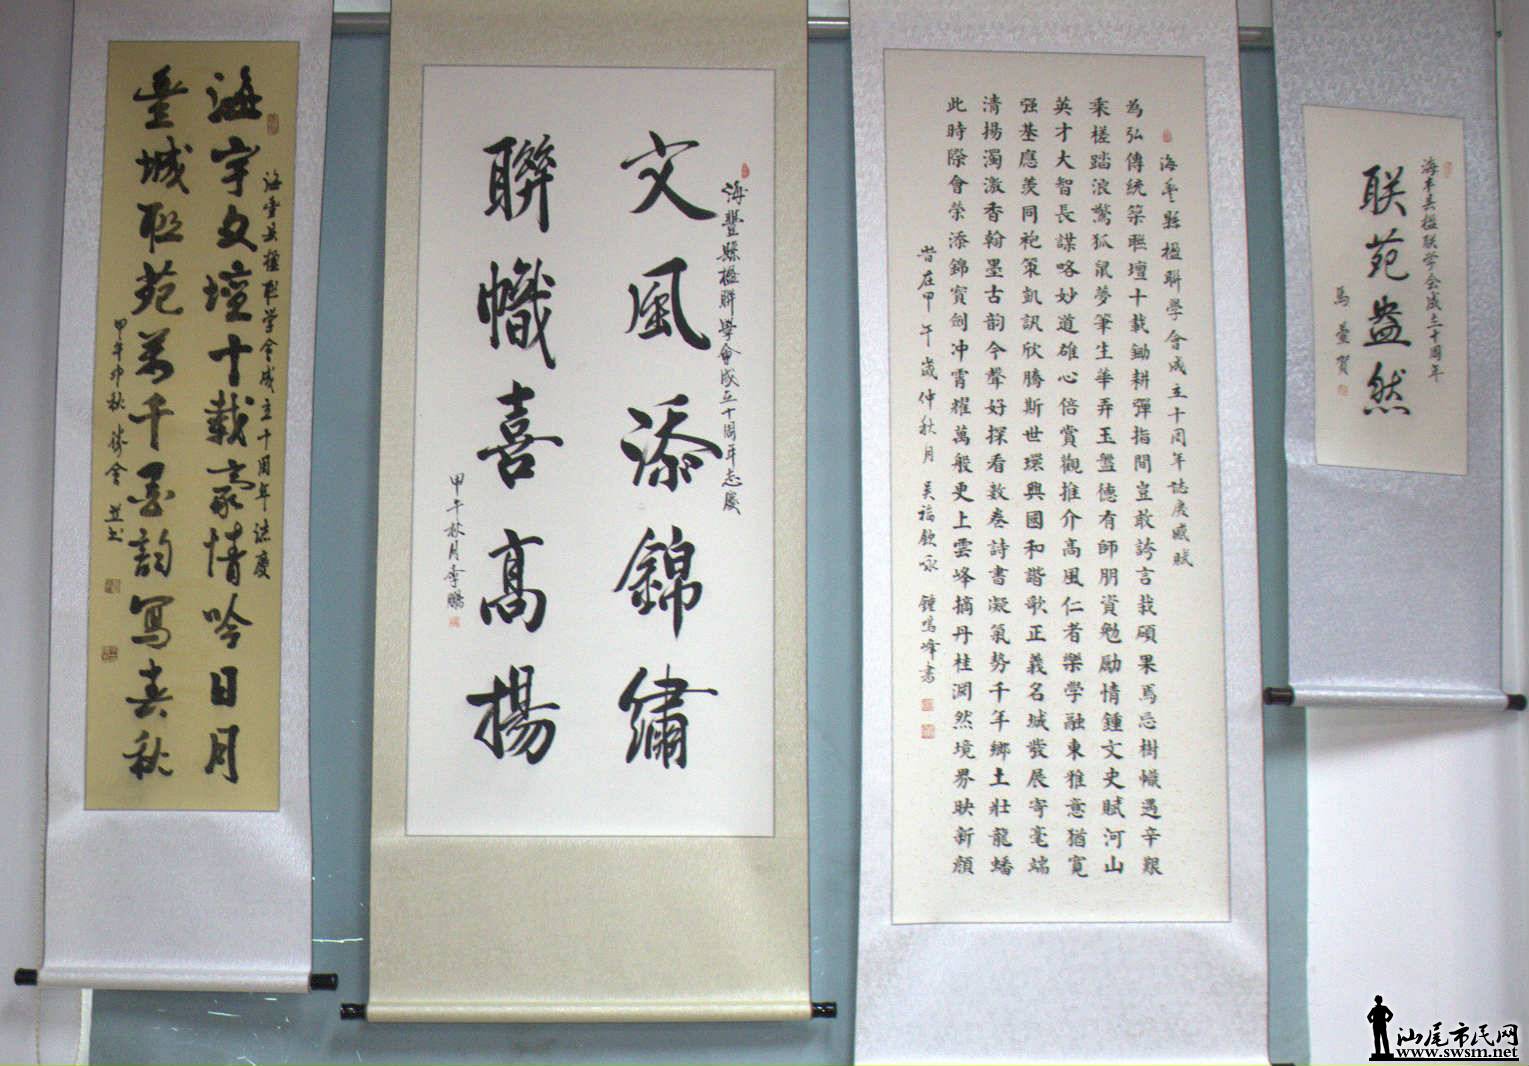 海丰县楹联学会成立十周年
联苑盎然
馬 賀
海豐縣楹聯學會成立十周年誌慶感賦
為弘傳統築聯壇十載鋤耕彈指間豈敢誇言栽碩果焉忘樹幟遇辛艱
乘槎踏浪驚狐鼠夢筆生華弄玉盤德有師朋資勉勵情鍾文史賦河山
英才大智長謀略妙道雄心倍賞觀推介高風仁者樂学融東雅意猶寬
强基應羨同袍策凱訊欣騰斯世環興國和諧歌正義名城發展寄毫端
清揚濁激香翰墨古韵今聲好探看数卷詩書凝氣勢千年鄉土壯龍蟠
此時際會榮添錦寶劍冲霄耀萬般更上雲峰摘丹桂淵然境界映新顏
在甲午歲仲秋月 吴福欽咏 鍾鳴峰書
海豐縣楹聯學會成立十周年志慶
文風添錦繡
聯幟喜高揚
甲午秋月李鵬
海豐县楹联学会成立十周年誌慶
海宇文壇十載豪情吟日月
豐城联苑萬千墨韵寫春秋
甲午仲秋 並书
汕尾市民网
www.swsm.net